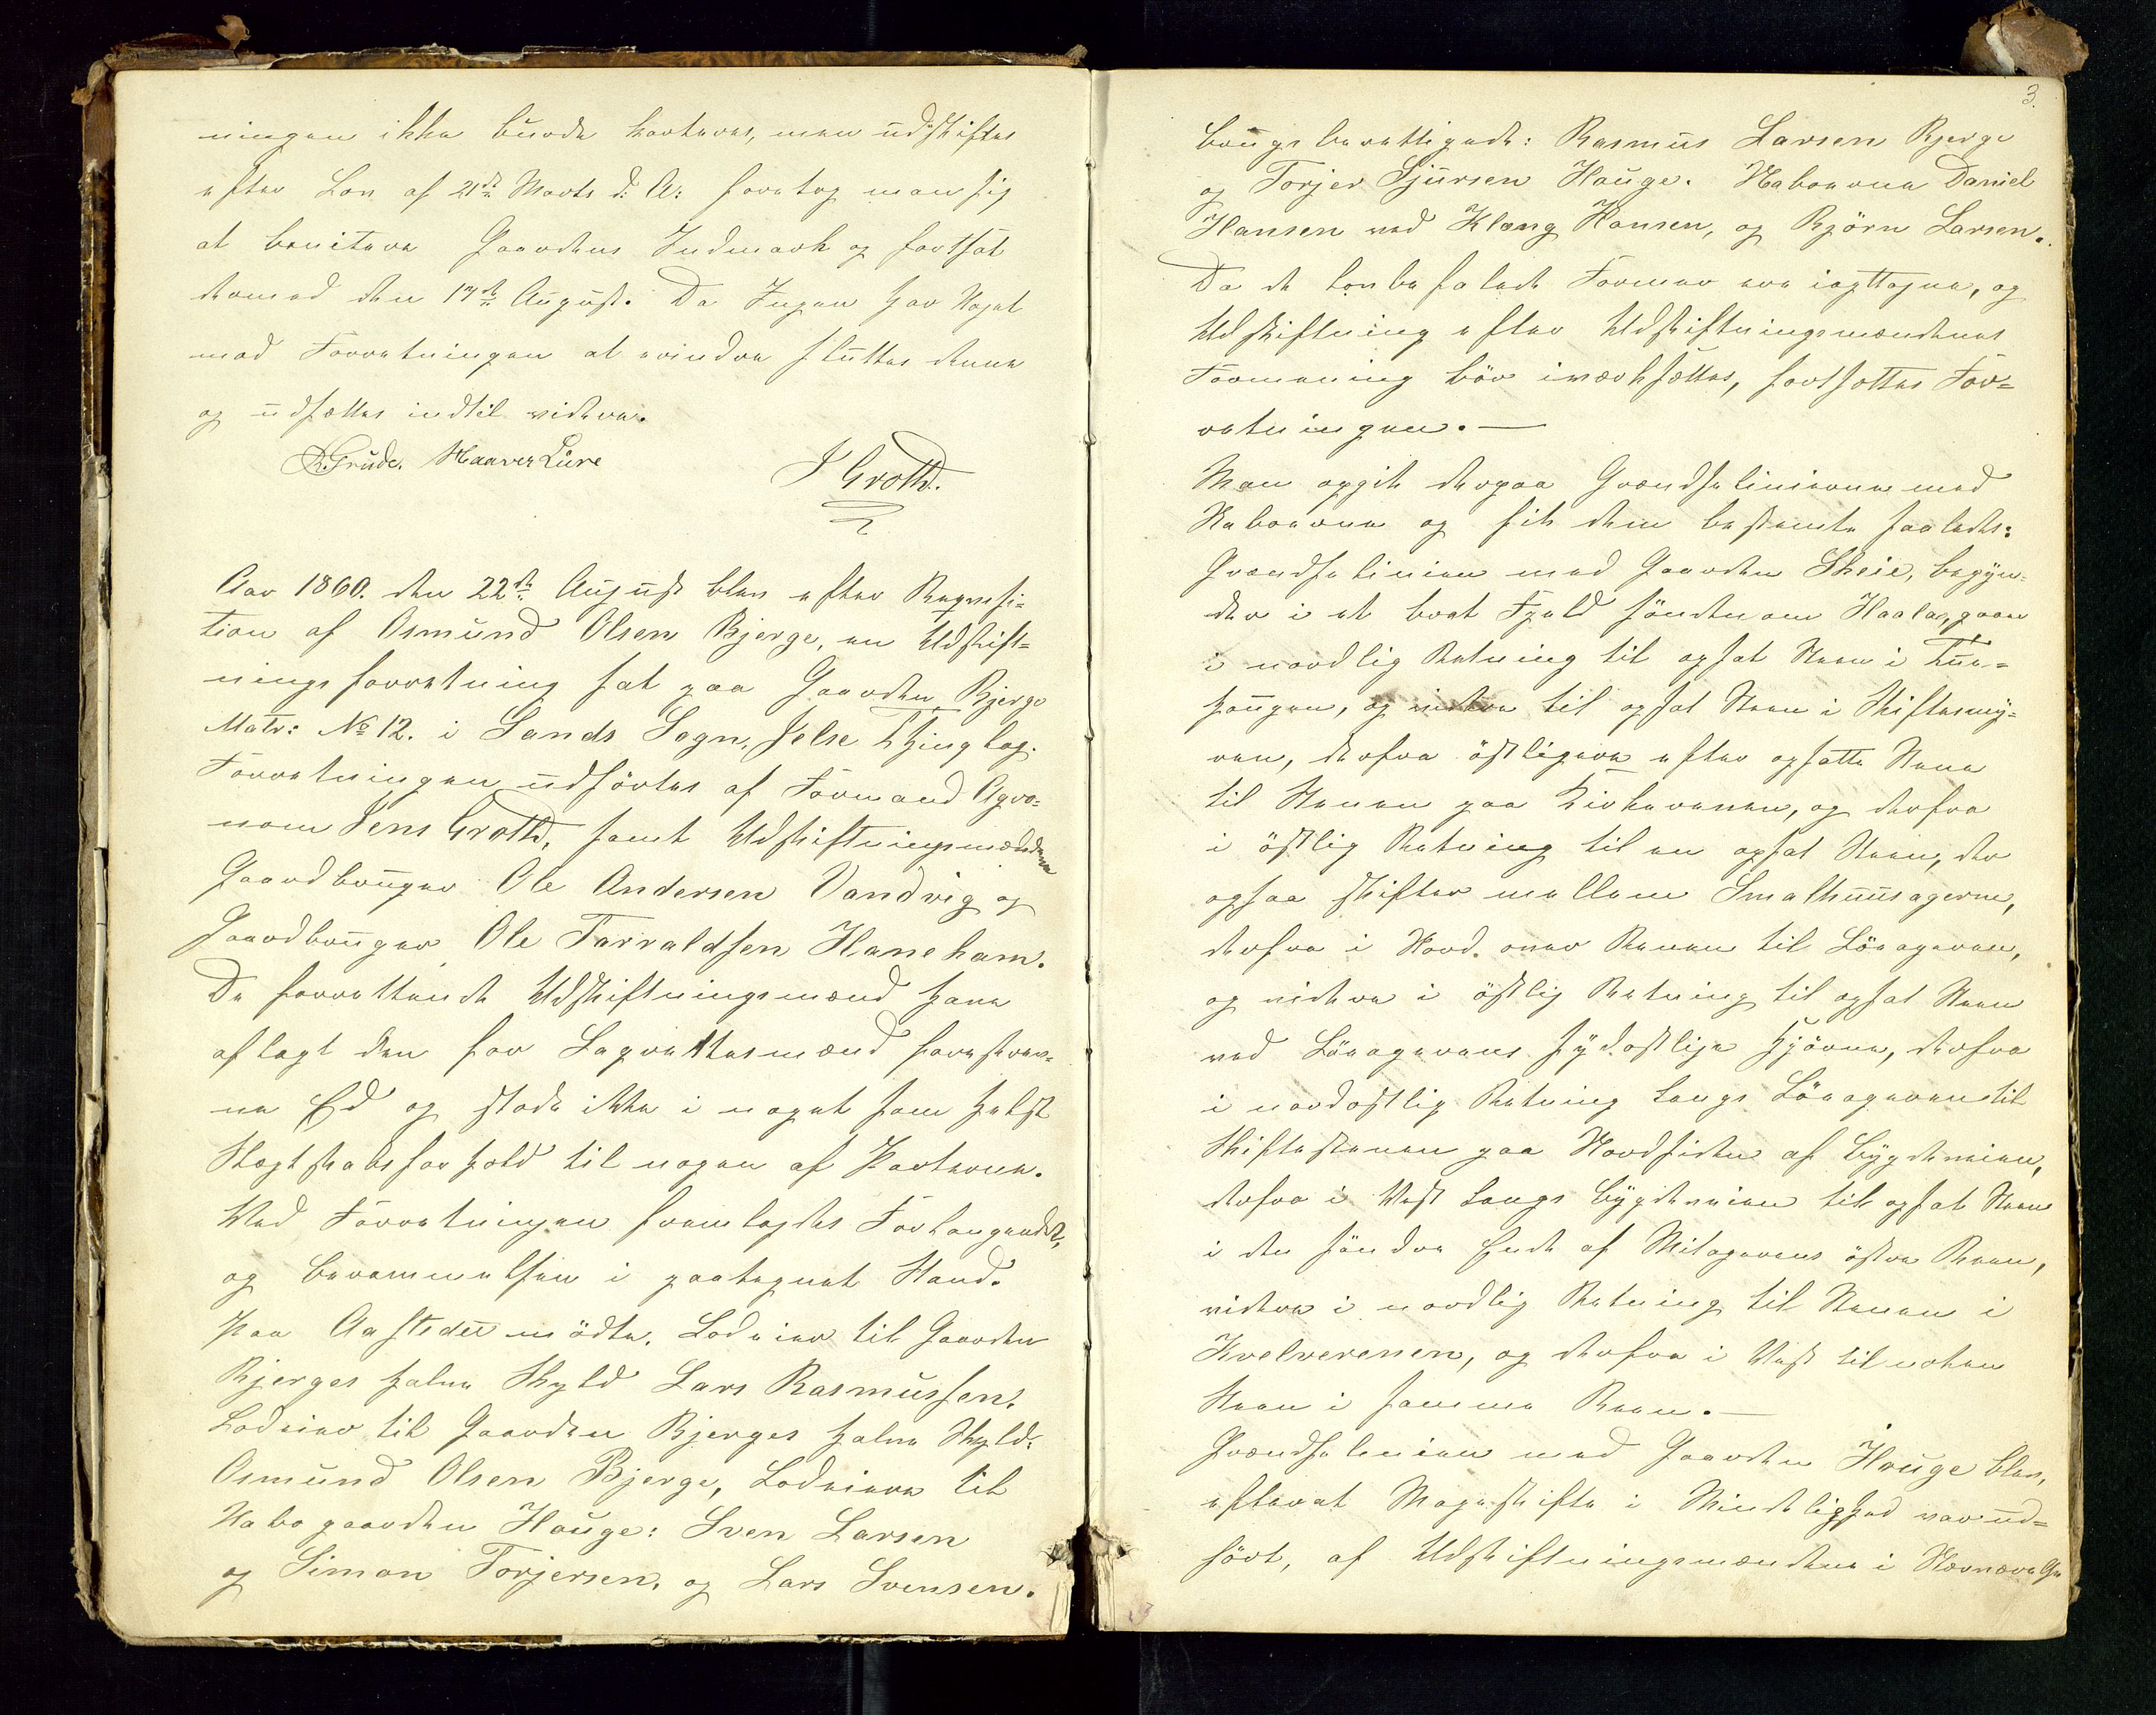 ningen ikke burde karteres, men udskiftes
efter Lov af 21de Marts d. A: foretog man sig
at bonitere Gaardens Indmark og fortsat
dermed den 17de August. Da Ingen har Noget
mod Forretningen at erindre sluttes denne
og udsættes indtil videre.
R. Grude. Haaver Lure
J Groth.
Aar 1860. den 22de August blev efter Reqvisi-
tion af Osmund Olsen Bjerge, en Udskift-
ningsforretning sat paa Gaarden Bjerge
Matr: No 12. i Sands Sogn, Jelse Thinglag.
Forretningen udførtes af Formand Agro-
nom Jens Groth, samt Udskiftningsmændene
Gaardbruger Ole Andersen Vandvig og
Gaardbruger Ole Tarraldsen Haneham.
De forrettende Udskiftningsmænd have
aflagt den for Lagrettesmænd foreskrev-
ne Ed og stode ikke i noget som helst
Slægtskabsforhold til nogen af Parterne.
Ved Forretningen fremlagdes Forlangendet,
og Berammelsen i paategnet Stand.
Paa Aastedet mødte. Lodeier til Gaarden
Bjerges halve Skyld Lars Rasmussen.
Lodeier til Gaarden Bjerges halve Skyld:
Osmund Olsen Bjerge, Lodeiere til
Nabogaarden Hauge: Sven Larsen
og Simon Torjersen, og Lars Svensen.
3.
brugsberettigede: Rasmus Larsen Bjerge
og Torjer Sjursen Hauge. Naboerne Daniel
Hansen ved Klæng Hansen, og Bjørn Larsen.
Da de lovbefalede Former ere iagttagne, og
Udskiftning efter Udskiftningsmændenes
Formening bør iværksættes, fortsattes For-
retningen. —
Man opgik derpaa Grændselinierne med
Naboerne og fik dem bestemte saaledes:
Grændselinien med Gaarden Skeie, begyn-
der i et brat Fjeld søndenom Haalar, gaar
i nordlig Retning til opsat Steen i Tun-
haugen, og videre til opsat Steen i Skiftesmy-
ren, derfra østligere efter opsatte Stene
til Stenen paa Kirkerenen, og derfra
i østlig Retning til en opsat Steen, der
ogsaa skifter mellem Smalhuusagerne,
derfra i Nord. over Renen til Løeageren,
og videre i østlig Retning til opsat Steen
ved Løeagerens sydostlige Hjørne, derfra
i nordostlig Retning langs Løeageren til
Skiftestenen paa Nordsiden af Bygdeveien,
derfra i Vest langs Bygdeveien til opsat Steen
i den søndre Ende af Mitagerens østre Reen,
videre i nordlig Retning til Stenen i
Kvelverenen, og derfra i Vest til noken
Steen i samme Reen. —
Grændselinien med Gaarden Hauge blev,
efterat Mageskifte i Mindelighed var ud-
ført, af Udskiftningsmændene i Nærværelse